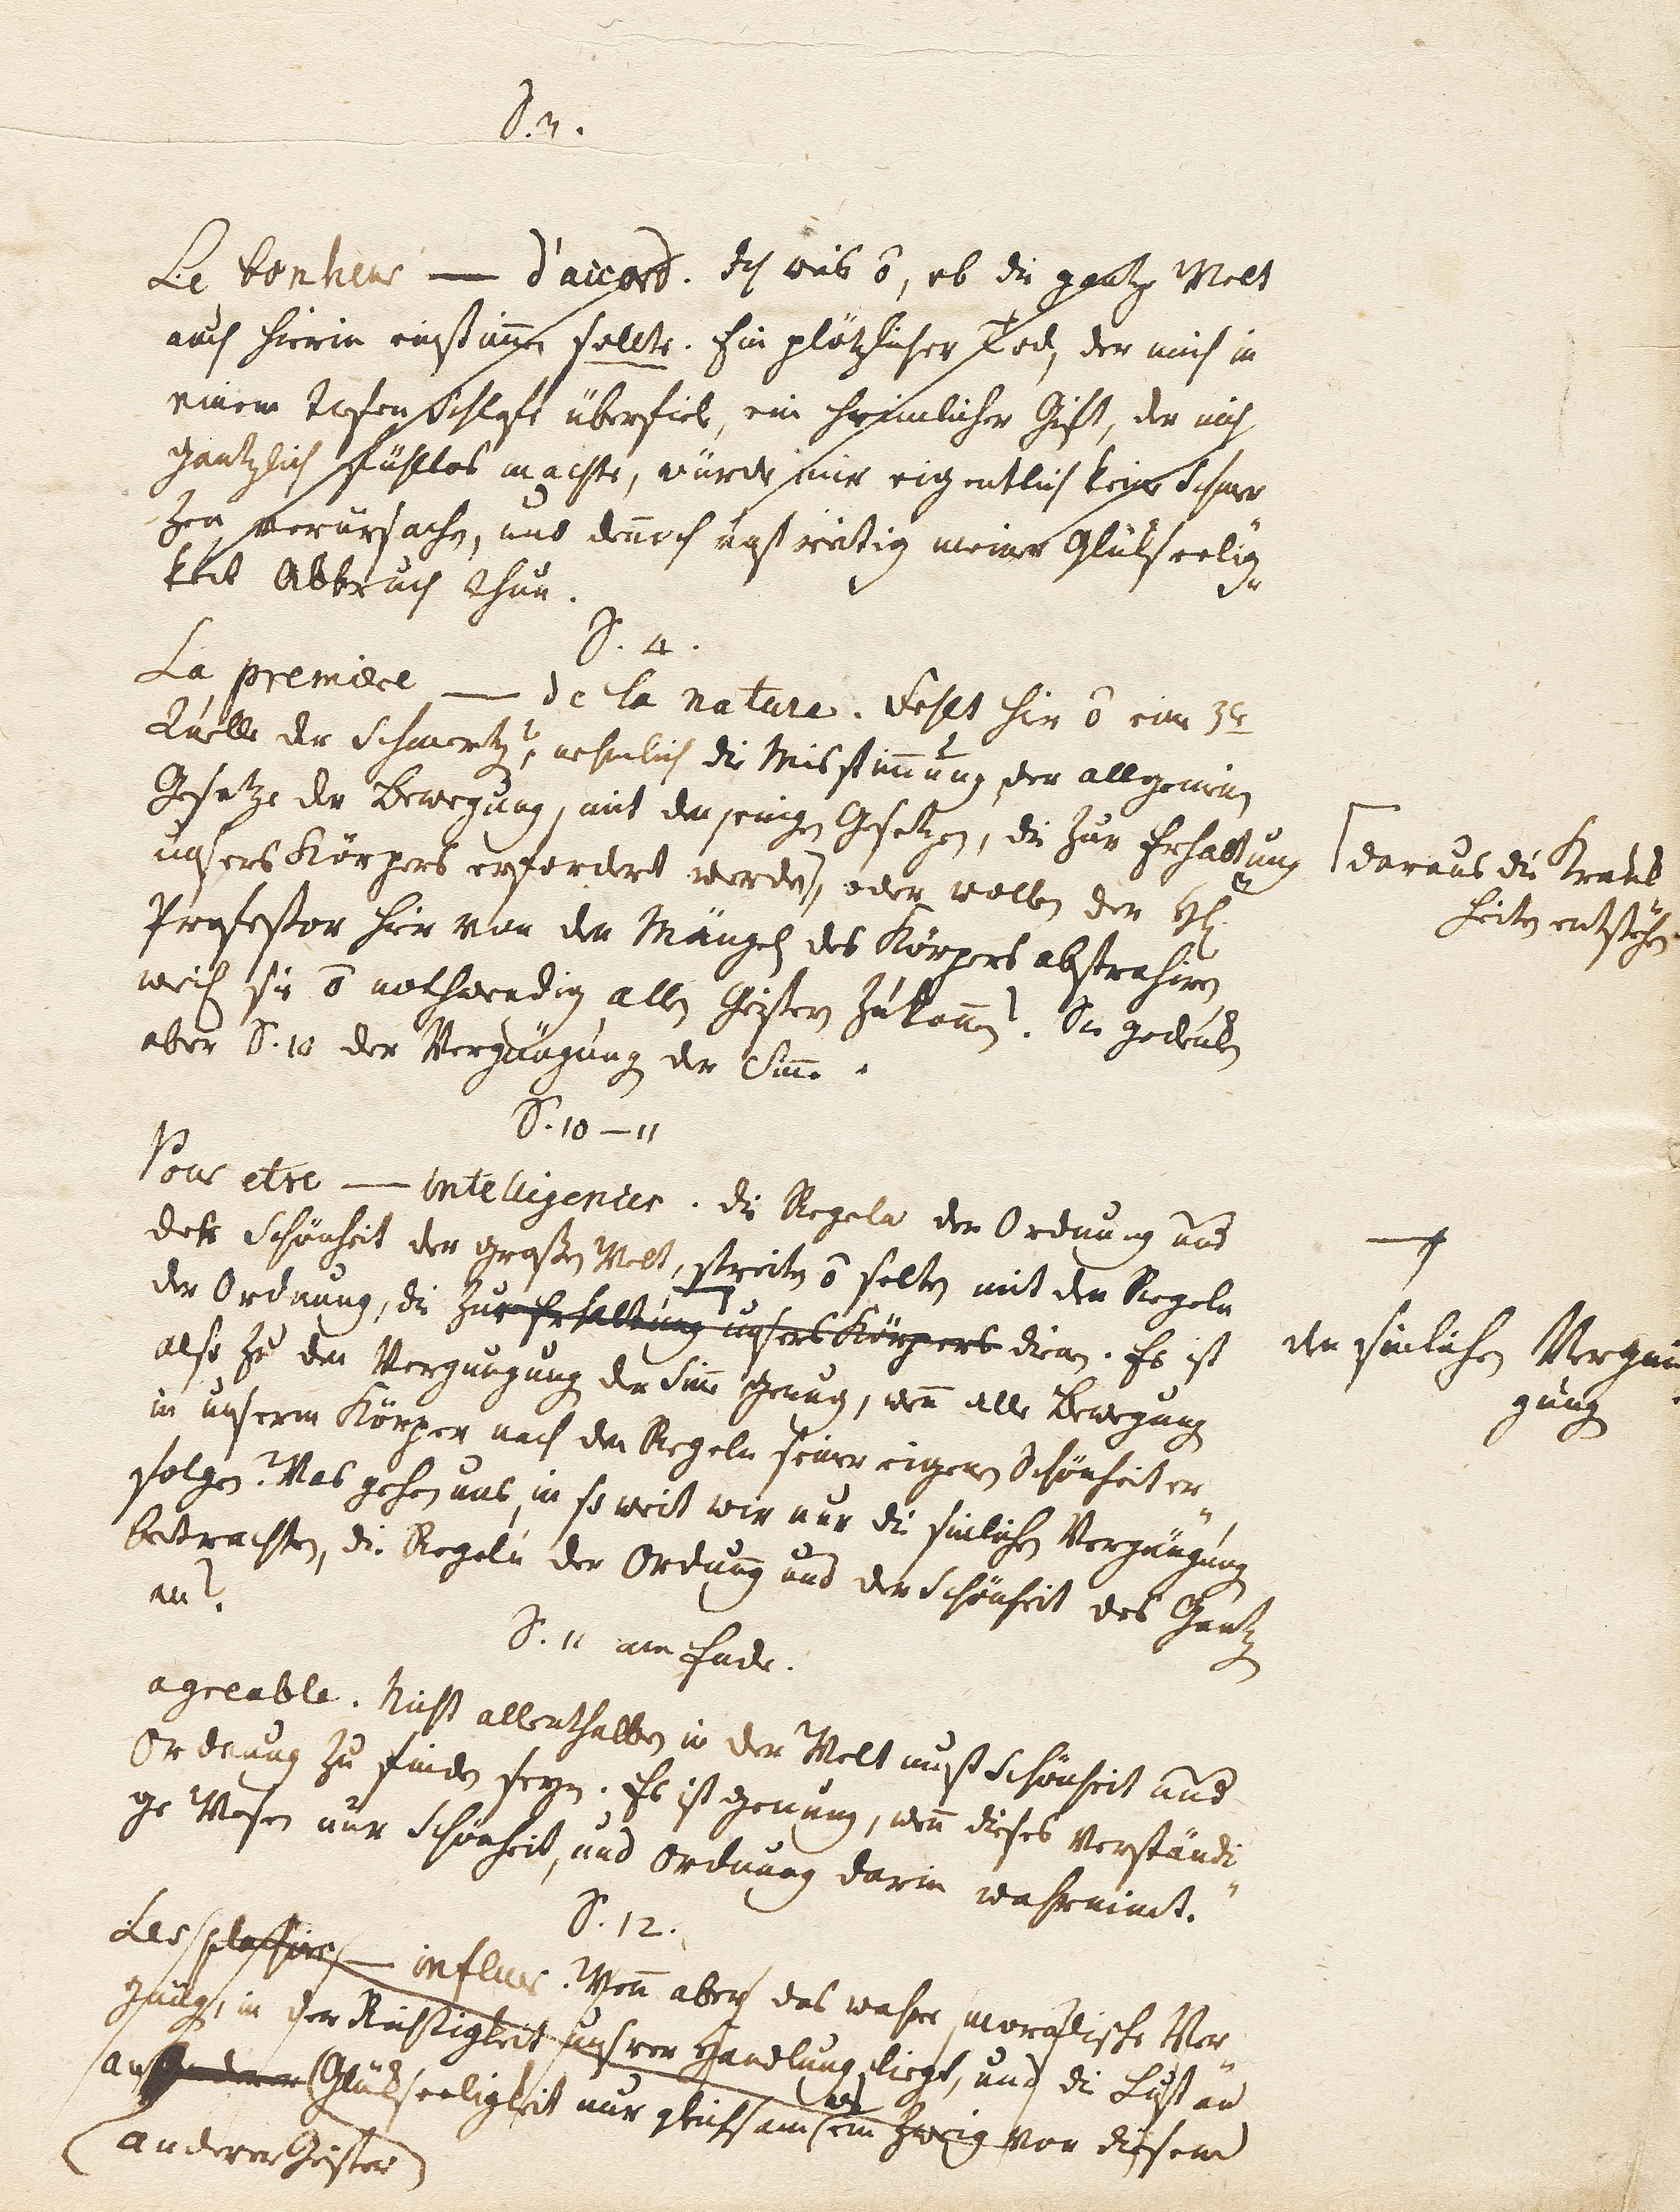 S. 3.
Le bonheur — d'accord. Ich weis ō, ob die gantze Welt
auch hierin einstim̄en sollte. Ein plötzlicher Tod, der mich in
einem Schlafe überfiel, ein heimlicher Gift, der mich
gäntzlich fühllos machte, würde mir eigentlich keine Schmer
zen verursachen, und den̄och unstreitig meiner Glükseelig„
keit Abbruch thun.
S. 4.
La premiere — de la nature. Fehlt hier ō eine 3te
Quelle der Schmertzen, nehmlich die Misstim̄ung der allgemeinen
Gesetze der Bewegung, mit denjenigen Gesetzen, die zur Erhaltung
unsers Körpers erfordert werden, oder wollen der Hr
⌈daraus die Krank
heiten entstehen
Professor hier von den Mängeln des Körpers abstrahiren,
weil sie ō nothwendig allen Geistern zukom̄en? Sie gedenken
aber S. 10 der Vergnügung der Sin̄e.
S. 10 — 11
Pour etre — intelligences. die Regeln der Ordnung und
der Schönheit der großen Welt, streiten ō selten mit den Regeln
der Ordnung, die zur Erhaltung unsers Körpers dienen. Es ist
den sinlichen Vergnü
gung
also zu den Vergnügung der Sin̄e genug, wen̄ alle Bewegung
in unserm Körper nach den Regeln seiner eigenen Schönheit er„
folgen. Was gehen uns, in so weit wir nur die sinlichen Vergnügung
betrachten, die Regeln der Ordnung und der Schönheit des Gantzen
an?
S. 11 am Ende.
agreable. Nicht allenthalben in der Welt muß Schönheit und
Ordnung zu finden seyn. Es ist genung, wen̄ dieses verständi„
ge Wesen nur Schönheit, und Ordnung darin wahrnimt.
S. 12.
Les plaisirs — influer. Wen̄ aber das wahre moralische Ver„
gnüg. in der Richtigkeit unsrer Handlung liegt, und die Lust an
anderer Glükseeligkeit nur gleichsam ein Zweig von diesem
anderer Geister